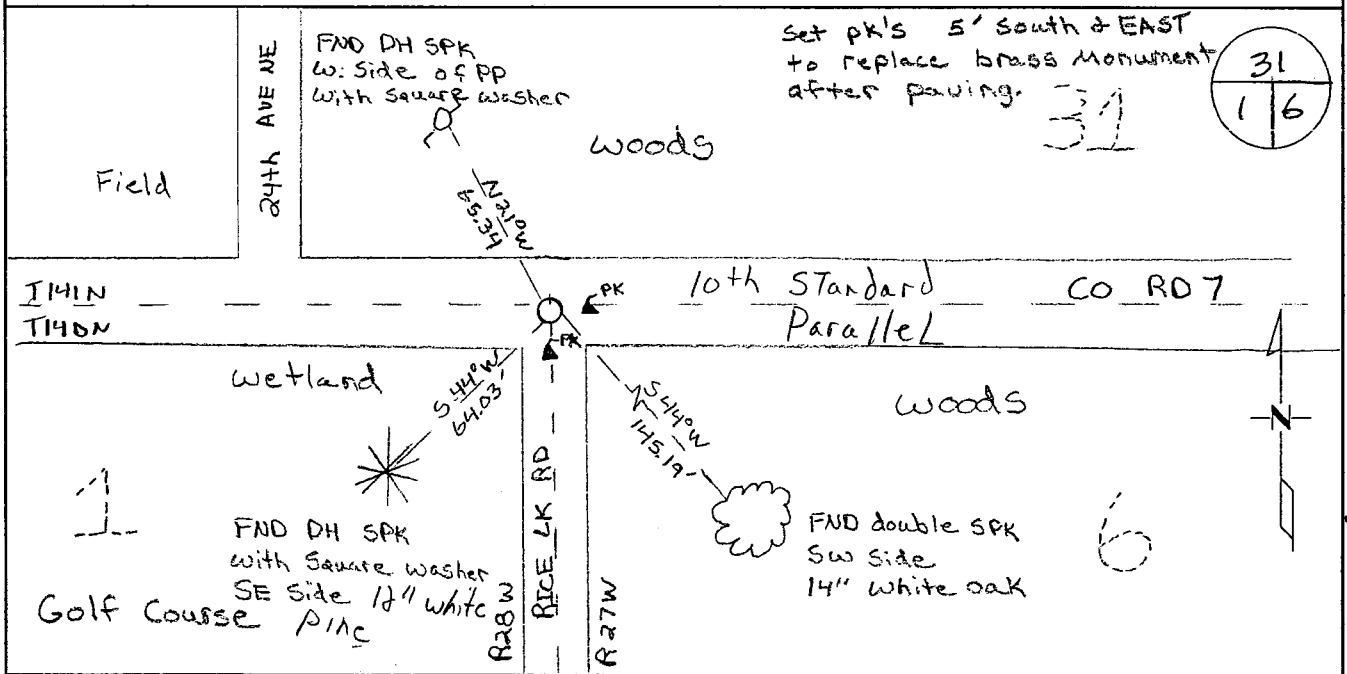 FND DH SPK
W. Side of PP
with Square washer
Set pk's 5' South & EAST
to replace brass Monument
after paving.
31
1 6
24th AVE NE
Field
woods
31
N21°W
65.34
T141N
T140N
PK
10th STandard
Parallel
CO RD 7
PK
wetland
S 44°W
64.03'
S44°W
145.19
woods
N
1
FND DH SPK
with Square washer
SE Side 12" white
Pine
Golf Course
R28W
RICE LK RD
R27W
FND double SPK
SW Side
14" white oak
6